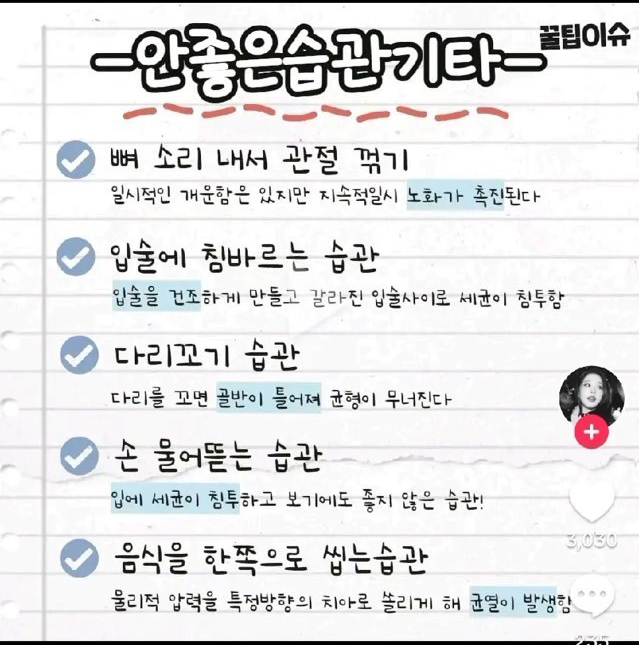 안좋은습관기타
꿀팁이슈
뼈 소리 내서 관절 꺾기
일시적인 개운함은 있지만 지속적일시 노화가 촉진된다
입술에 침바르는 습관
입술을 건조하게 만들고 갈라진 입술사이로 세균이 침투함
다리꼬기 습관
다리를 꼬면 골반이 틀어져 균형이 무너진다
손 물어뜯는 습관
입에 세균이 침투하고 보기에도 좋지 않은 습관!
음식을 한쪽으로 씹는습관
물리적 압력을 특정방향의 치아로 쏠리게 해 균열이 발생함
3,030